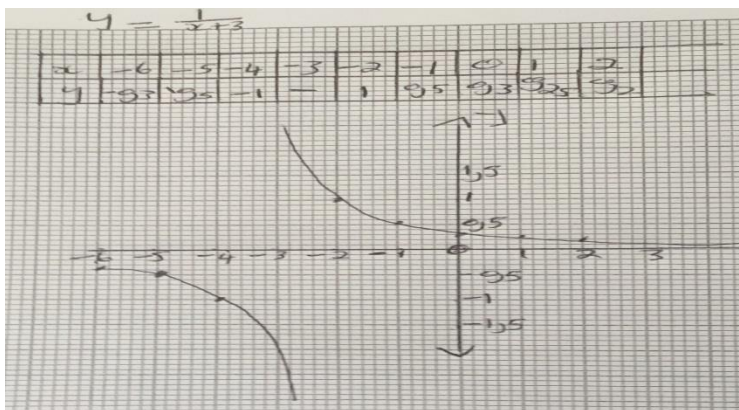 y = 1/x+3
x -6 -5 -4 -3 -2 -1 0 1 2
y -0,3 -0,5 -1 - 1 0,5 0,3 0,25 0,2
y
1,5
1
0,5
-6 -5 -4 -3 -2 -1 0 1 2 3
-0,5
-1
-1,5